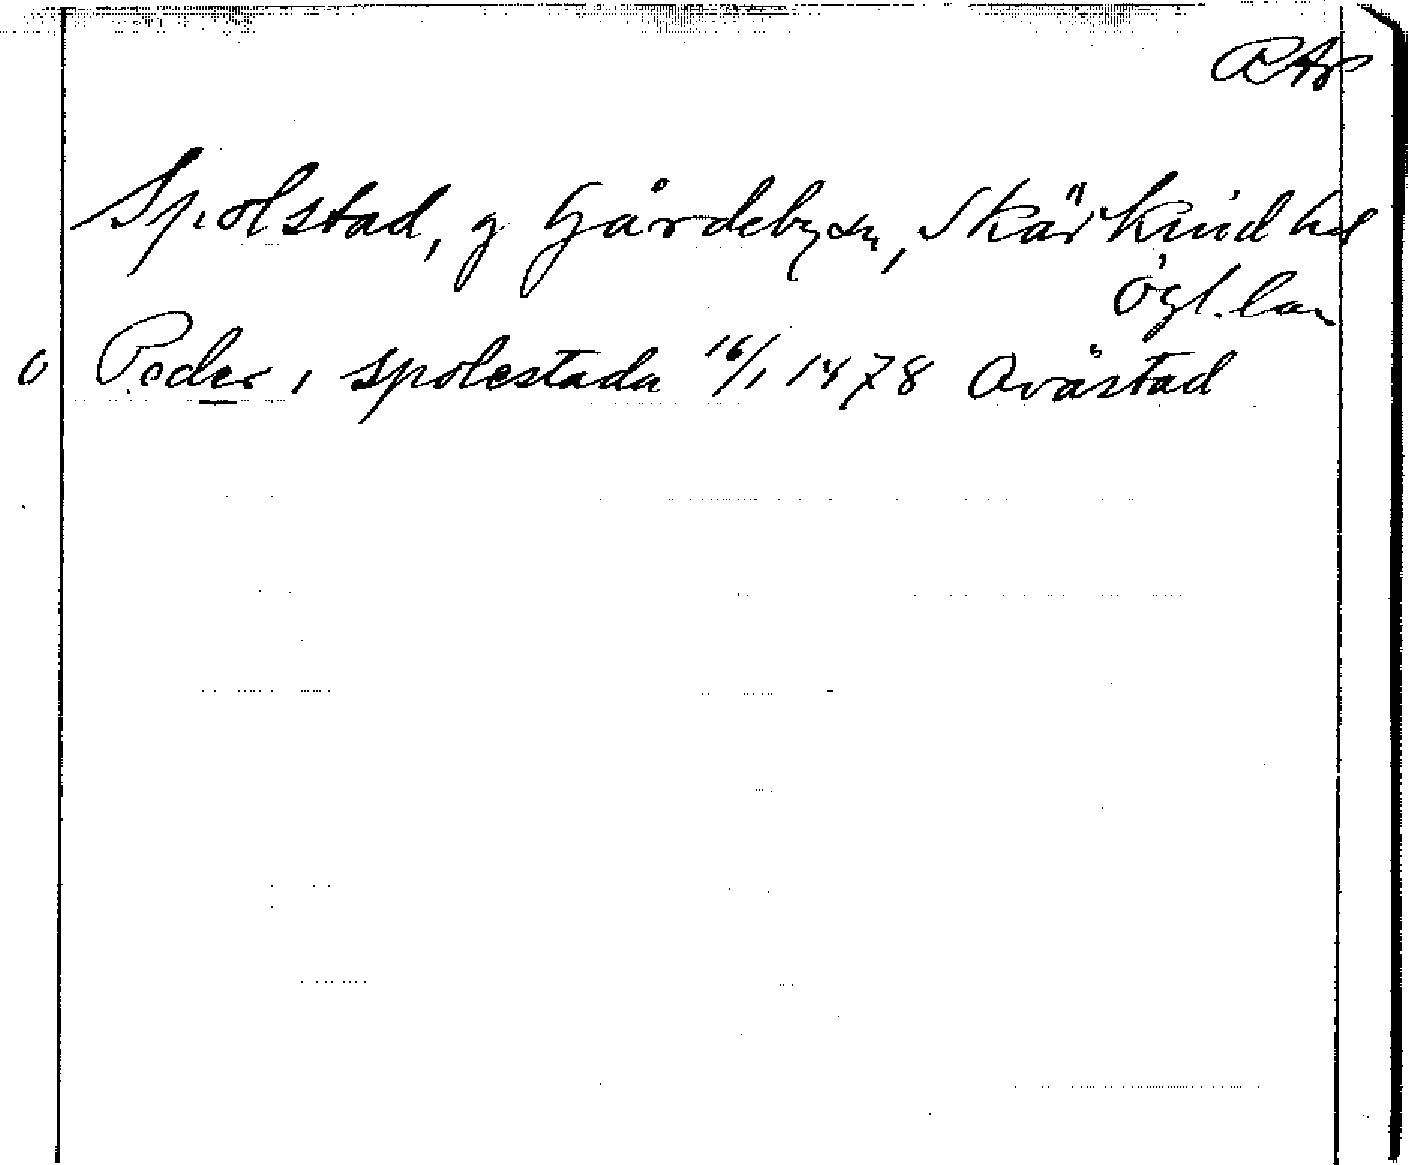 RAp
Spolstad, g Gårdeby sn, Skärkind hd
Ögl. län
o Peder i spolestada 16/1 1478 Ovästad